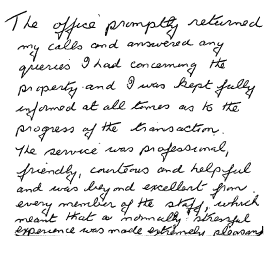 The office promptly returned
my calls and answered any
queries I had concerning the
property and I was kept fully
informed at all times as to the
progress of the transaction.
The service was professional,
friendly, courteous and helpful
and was beyond excellent from
every member of the staff, which
meant that a normally stressful
experience was made extremely pleasant